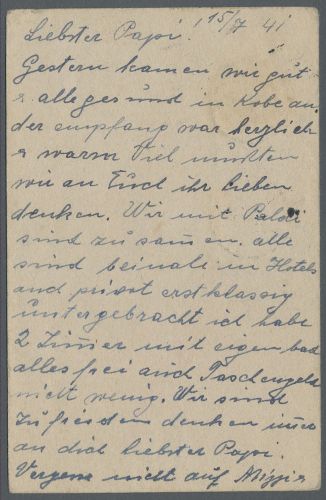 Liebster Papi! 15/7 41
Gestern kamen wir gut
& alle gesund in Kobe an,
der empfang war herzlich
& warm Viel mußten
wir an Euch ihr lieben
denken. Wir mit Poldi
sind zusam̅en. alle
sind beinahe in Hotels
and privat erstklassig
untergebracht ich habe
2 Zim̅er mit eigen bad
alles frei auch Taschengeld
nicht wenig. Wir sind
zufrieden denken im̅er
an dich liebster Papi.
Vergess nicht auf